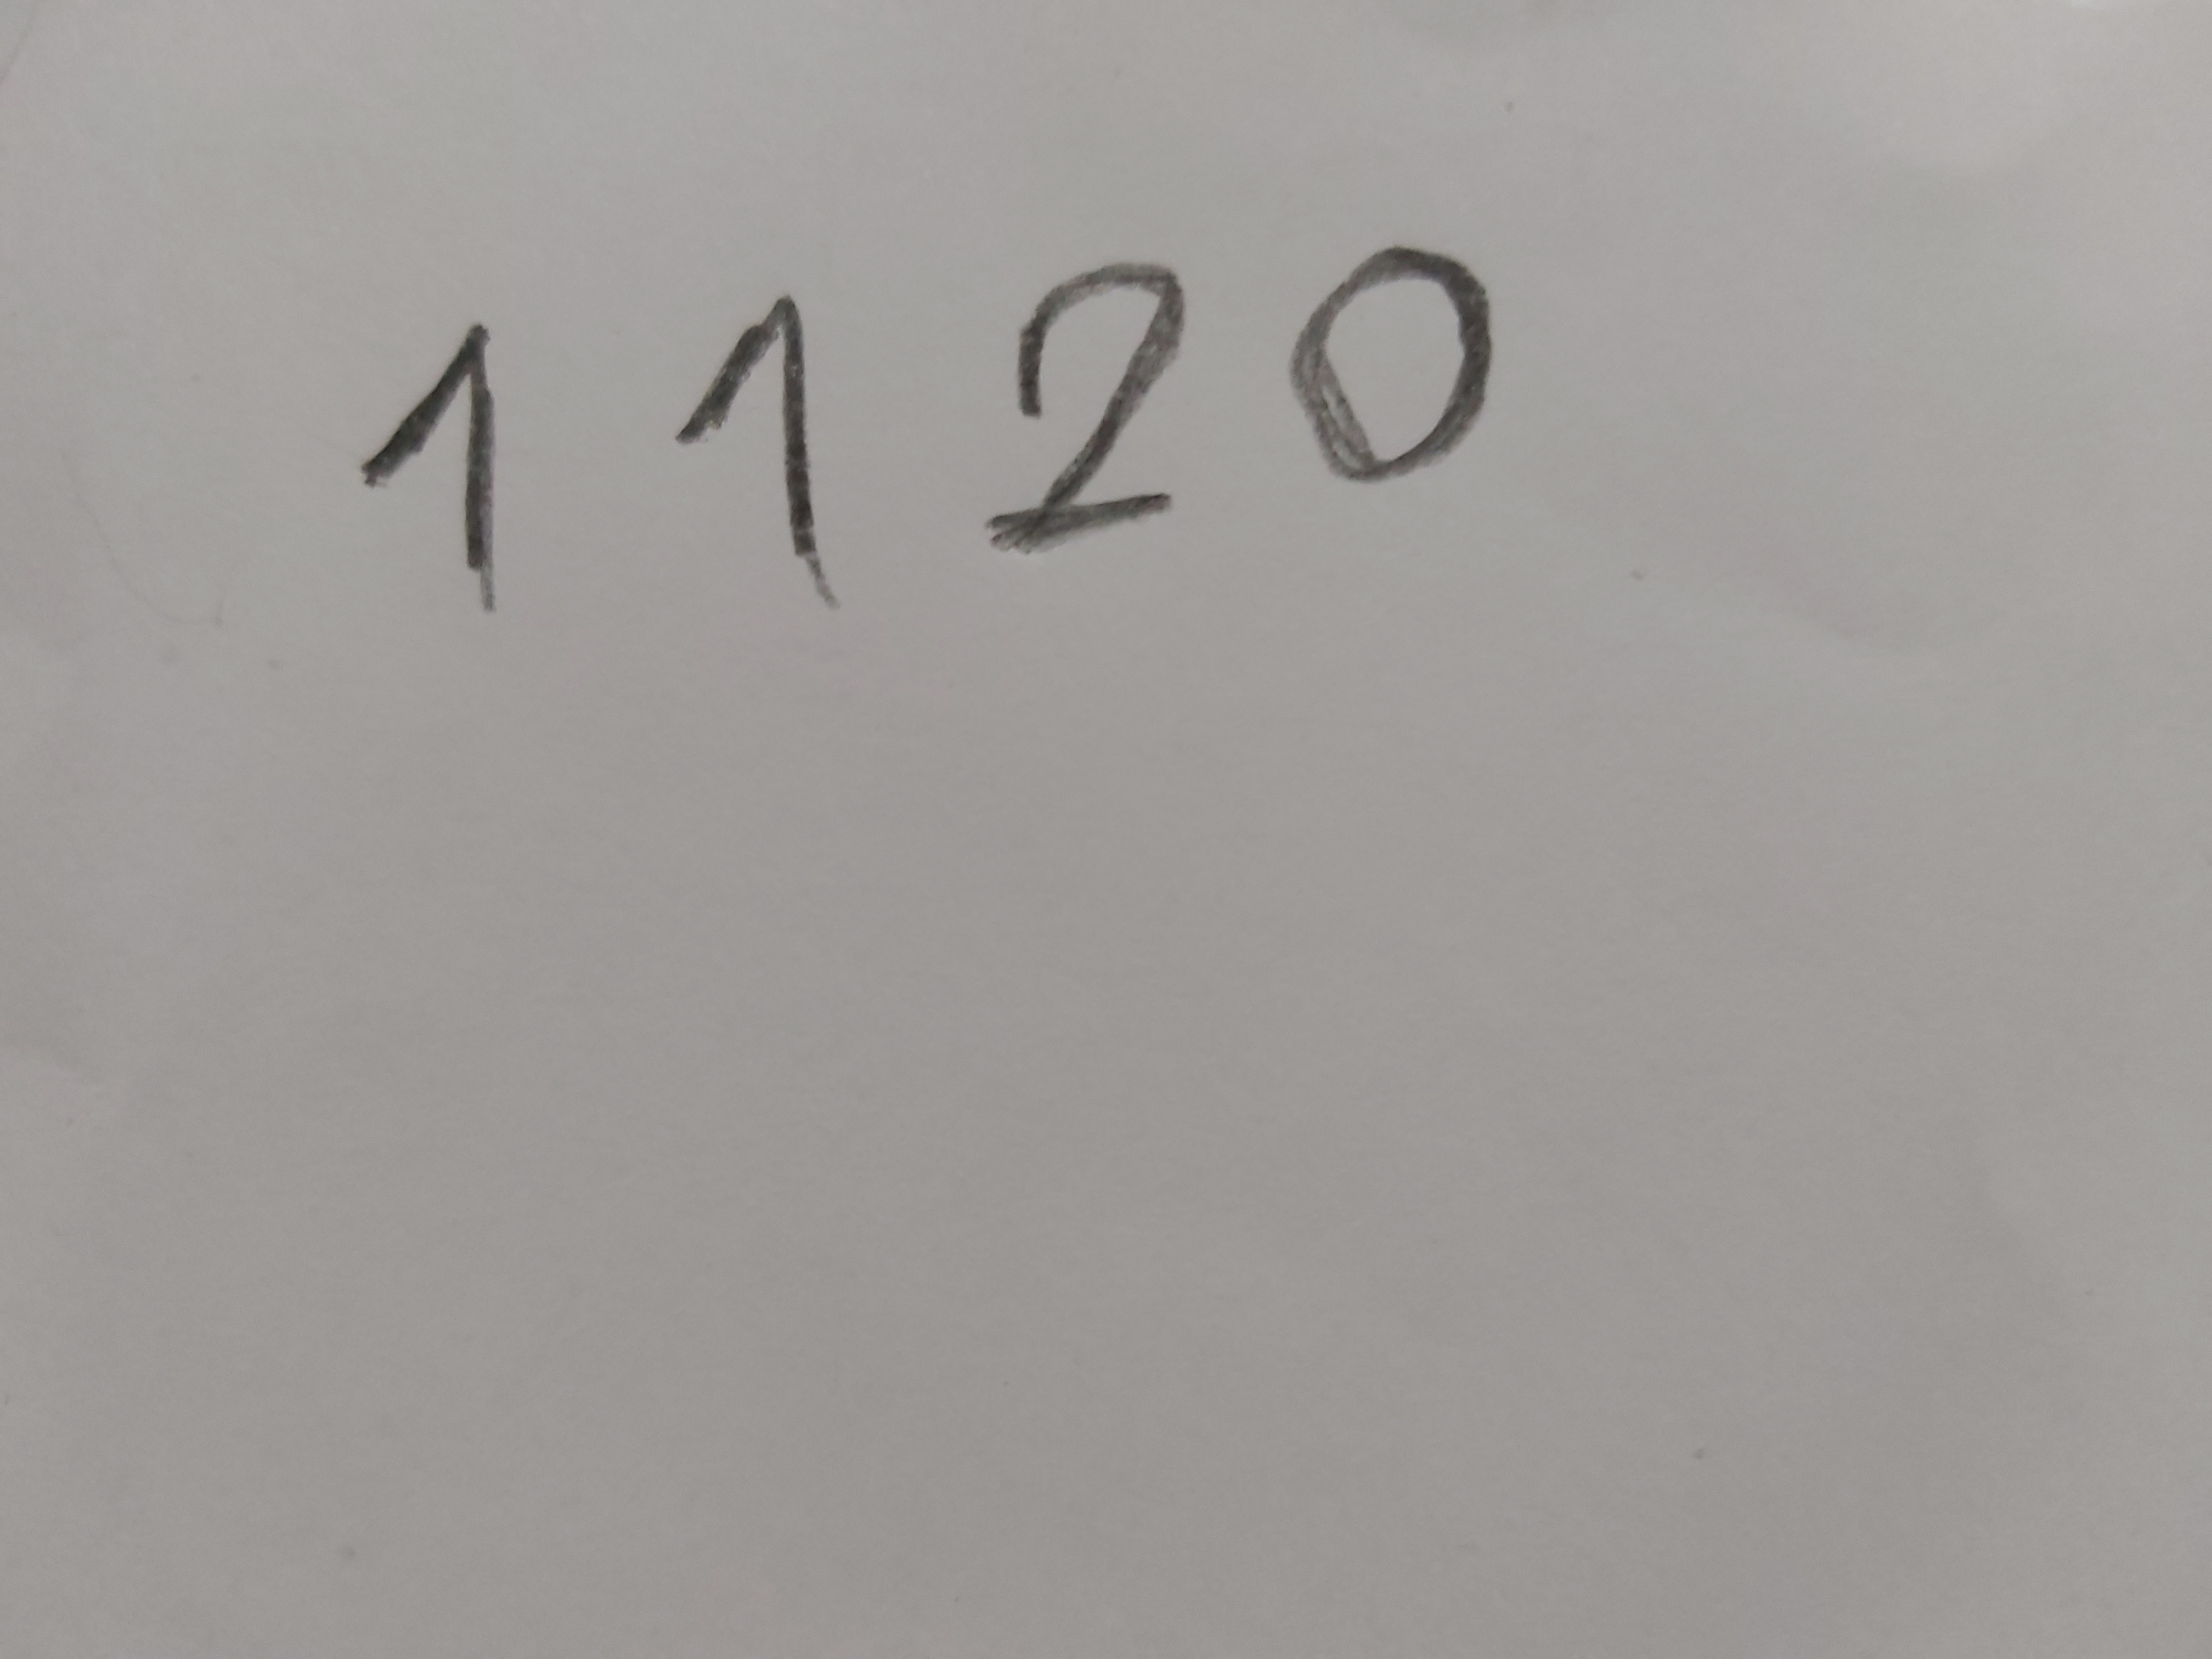 1 1 2 0